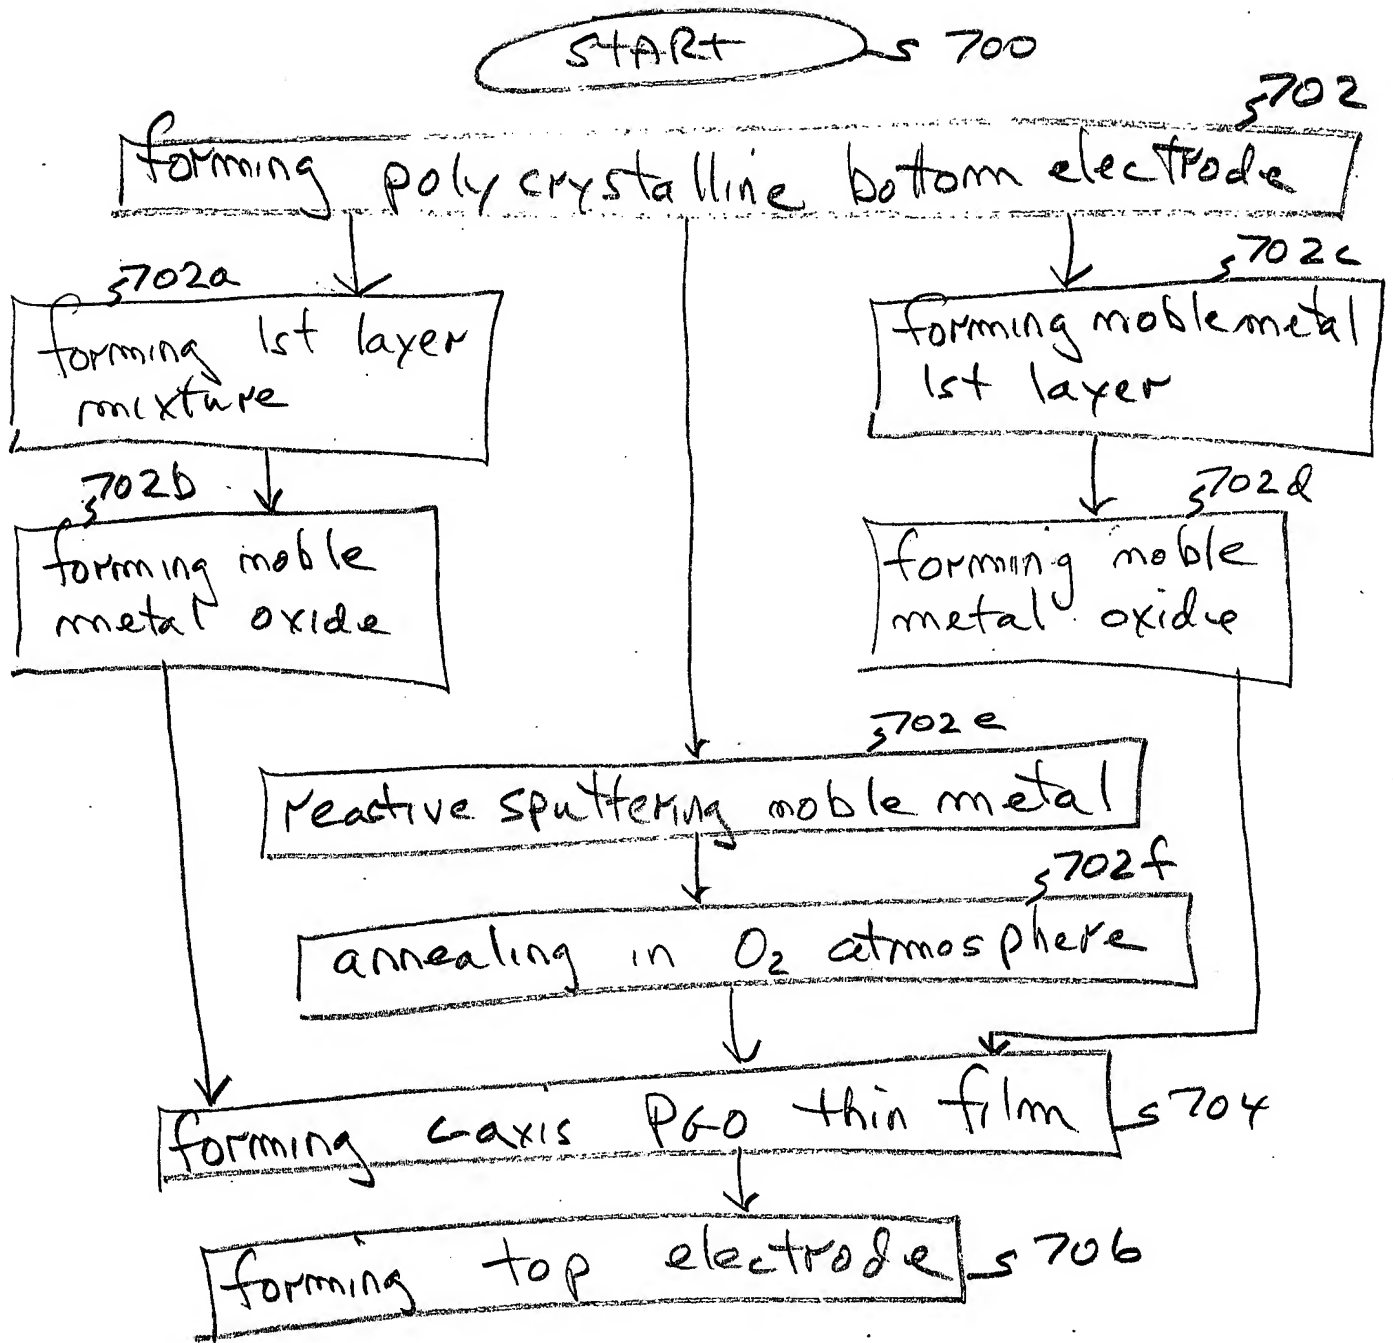 START 700
702
forming polycrystalline bottom electrode
702a
forming 1st layer
mixture
702c
forming noble metal
1st layer
702b
forming noble
metal oxide
702d
forming noble
metal oxide
702e
reactive sputtering noble metal
702f
annealing in O2 atmosphere
forming c-axis PGO thin film 704
forming top electrode 706